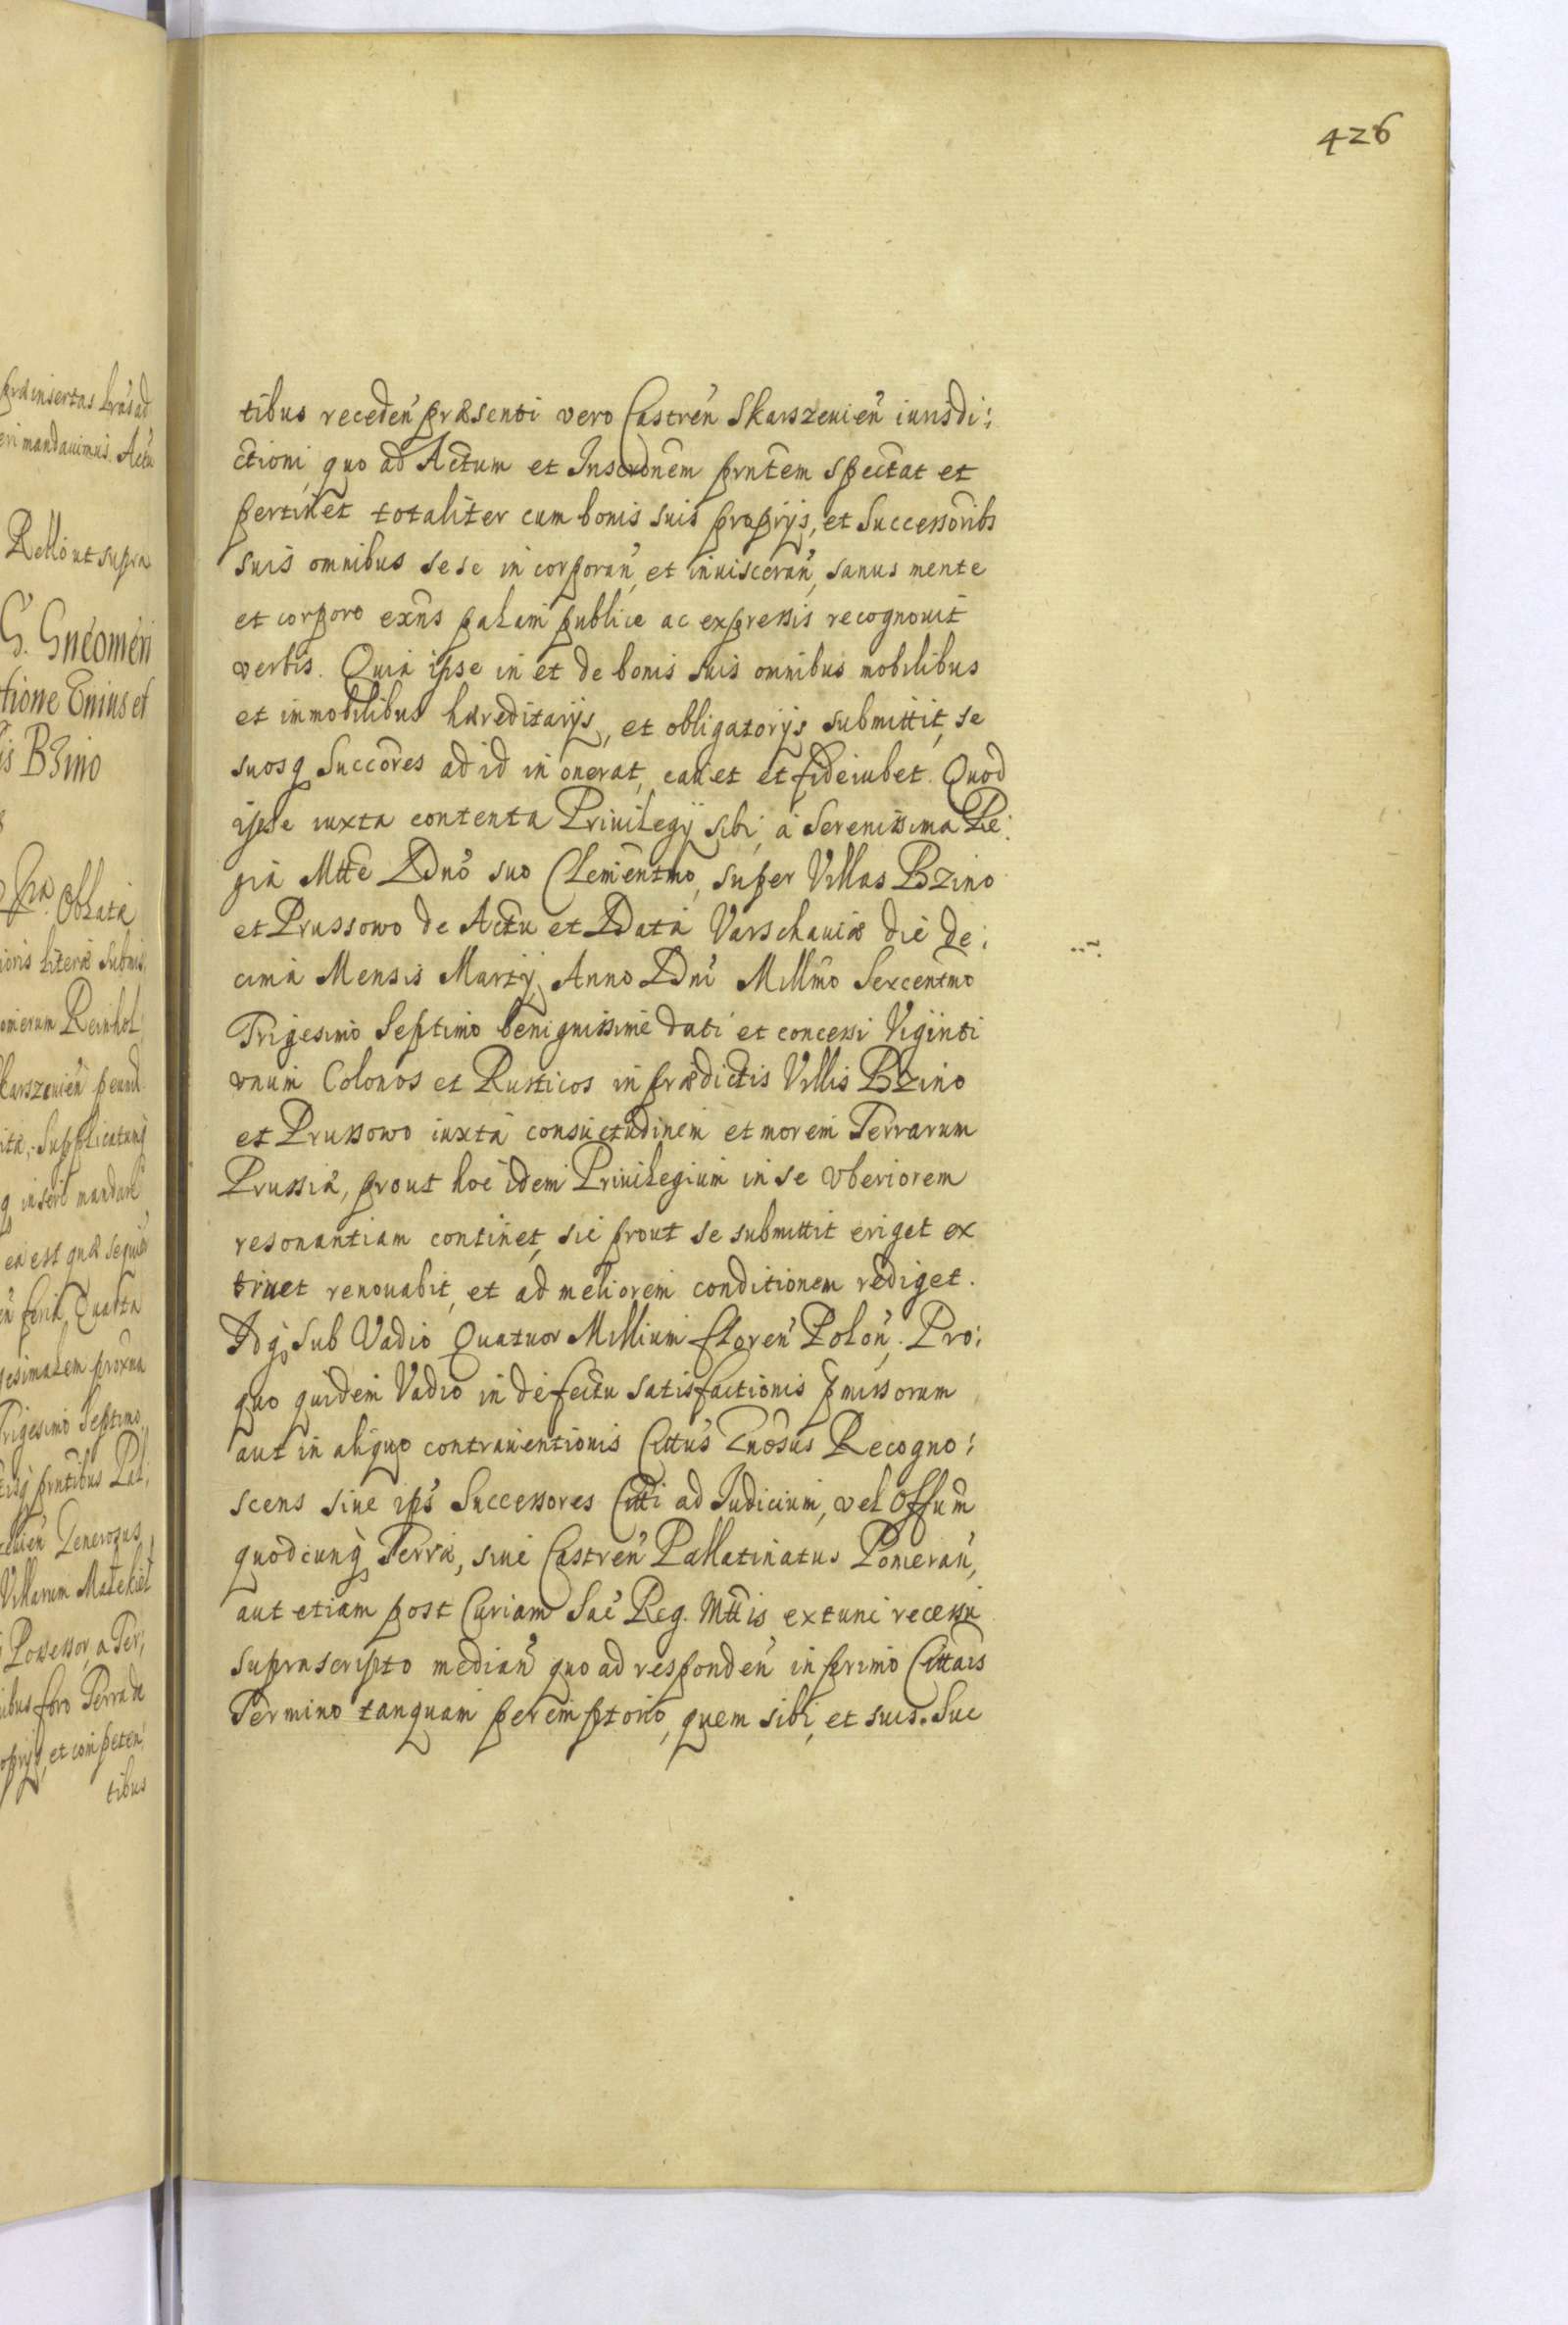 426
tibus receden præsenti vero Castren Skarszeuien iurisdi:
ctioni, quo ad Actum et Inscrõnem prntem spectat et
pertinet totaliter cum bonis suis proprijs, et Successoribs
suis omnibus sese in corporan, et inuisceran, sanus mente
et corpore exns palam publice ac expressis recognouit
verbis. Quia ipse in et de bonis suis omnibus mobilibus
et immobilibus hæreditarijs, et obligatorijs submittit, se
suosq Succores ad id in onerat, cauet et fideiubet. Quod
ipse iuxta contenta Priuilegij sibi, à Serenissima Re:
gia Mtte Dno suo Clementmo, super Villas Bzino
et Prussowo de Actu et Data Varschauiæ die de:
cima Mensis Martij, Anno Dni Millmo Sexcentmo
Trigesimo Septimo benignissime dati et concessi Viginti
vnum Colonos et Rusticos in prædictis Villis Bzino
et Prussowo iuxta consuetudinem et morem Terrarum
Prussiæ, prout hoc idem Priuilegium in se vberiorem
resonantiam continet, sic prout se submittit eriget ex
truet renouabit, et ad meliorem conditionem rediget.
Idq sub Vadio Quatuor Millium floren Polon, Pro:
quo quidem Vadio in defectu satisfactionis pmissorum
aut in aliquo contrauentionis Cittus Gnosus Recogno:
scens siue ips Successores Citti ad Iudicium, vel Offum
quodcunq Terrã, siue Castren Pallatinatus Pomeran,
aut etiam post Curiam Sac Reg. Mttis extunc recessu
suprascripto median quo ad responden in primo Cittais
Termino tanquam peremptorio, quem sibi, et suis. Suc
præinsertas lras ad
eri mandauimus. Actu
Rello ut supra
G. Gneomeri
tione Enius et
is Bzino
Oblata
ioris literæ submis
omerum Reinhol:
karszeuien
ita, Supplicatumq
q inseri mandari
ea est quæ sequit
feria Quarta
gesimalem proxima
Trigesimo Septimo
tisq prntibus Pal:
Generosus
Villarum
Possessor, a Ter:
ibus foro Terra
oprijs, et competen:
tibus